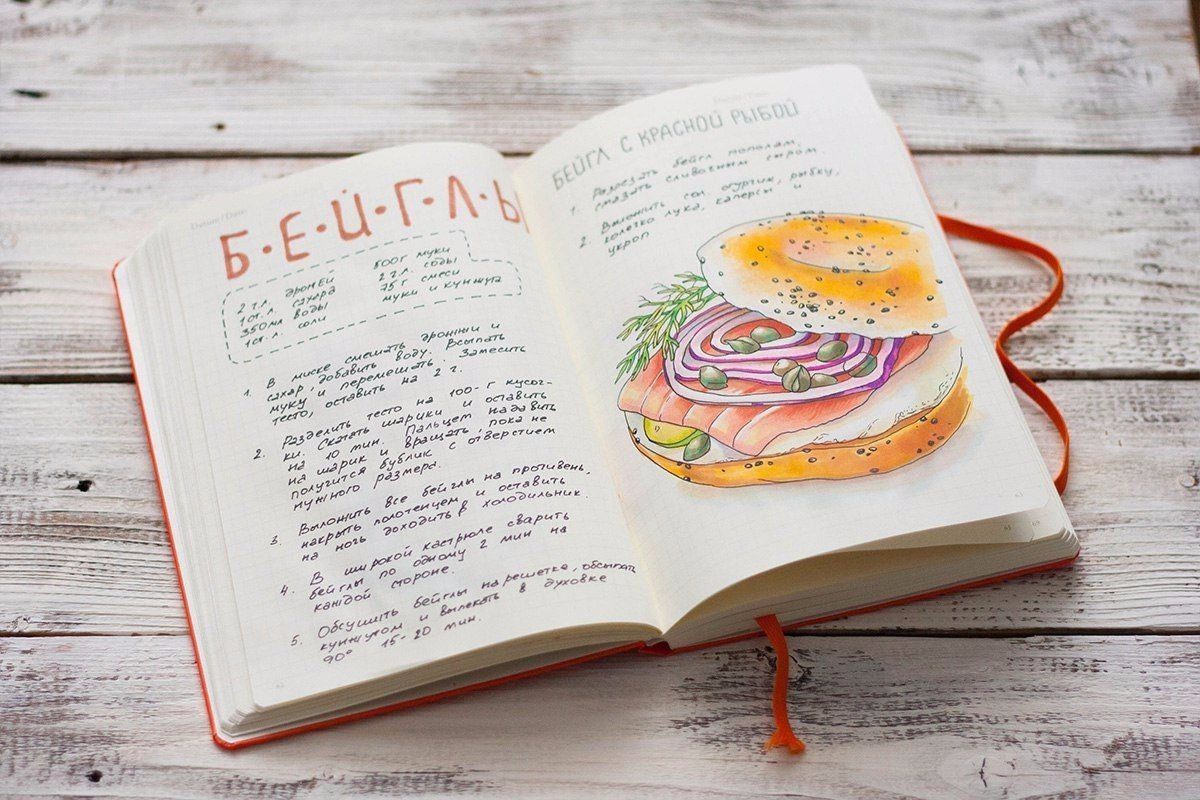 Datum / Date:
Б·Е·Й·Г·Л·Ы
2 г.л. дрожей 500г муки
1 ст.л. сахара 2 г.л. соды
350мл воды 25 г смеси
1 ст.л. соли муки и кунжута
1. В миске смешать дрожжи и
сахар, добавить воду. Всыпать
муку и перемешать. Замесить
тесто, оставить на 2 г.
2. Разделить тесто на 100-г кусоч-
ки. Скатать шарики и оставить
на 10 мин. Пальцем надавить
на шарик и вращать, пока не
получится бублик с отверстием
нужного размера.
3. Выложить все бейглы на противень,
накрыть полотенцем и оставить
на ночь доходить в холодильник.
4. В широкой кастрюле сварить
бейглы по одному 2 мин на
каждой стороне.
5. Обсушить бейглы на решетка, обсыпать
кунжутом и выпекать в духовке
90° 15-20 мин.
БЕЙГЛ С КРАСНОЙ РЫБОЙ
1. Разрезать бейгл пополам,
смазать сливочным сыром.
2. Выложить сол. огурчик, рыбку,
колечко лука, каперсы и
укроп